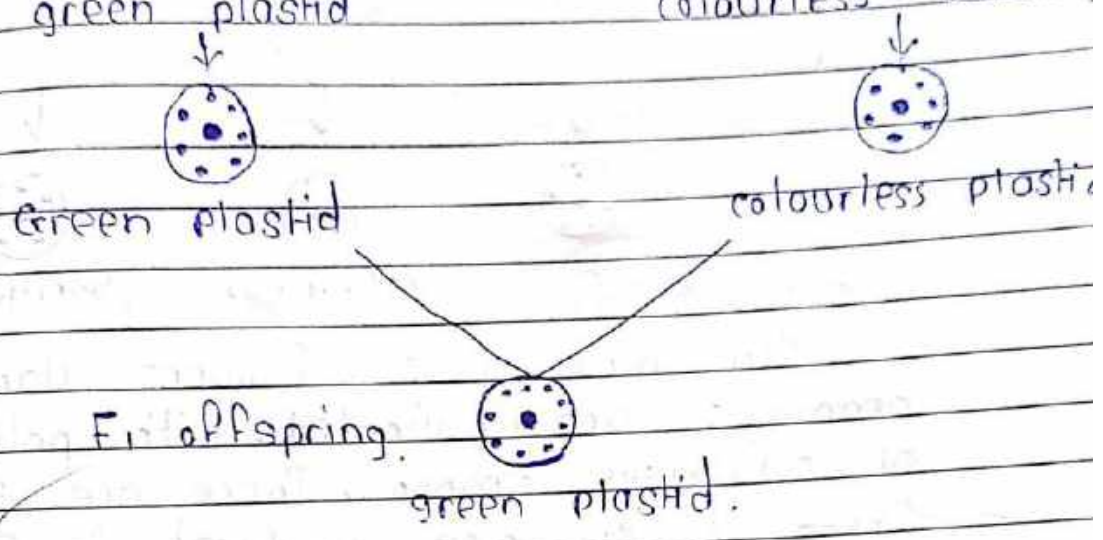 green plastid colourless
Green plastid colourless plastid
F1 offspring.
green plastid.